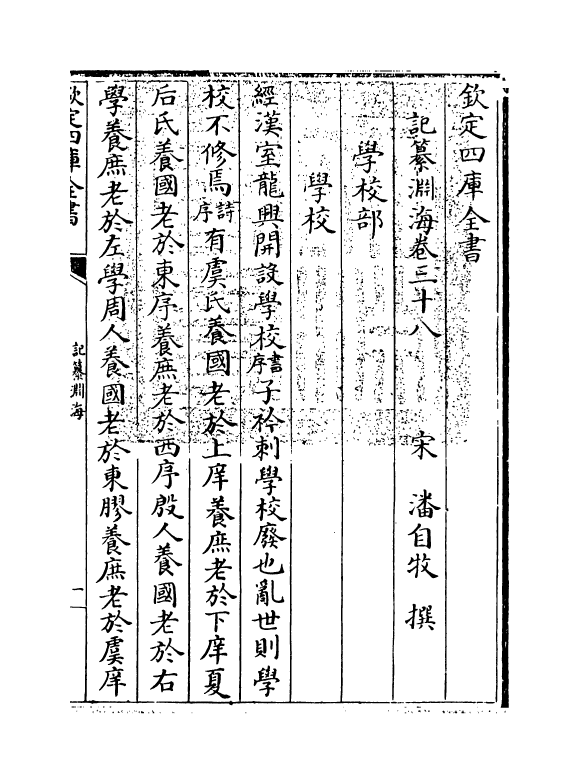 欽定四庫全書
記纂淵海卷三十八　宋　潘自牧　撰
學校部
學校
經漢室龍興開設學校書序子衿刺學校廢也亂世則學
校不修焉詩序有虞氏養國老於上庠養庶老於下庠夏
后氏養國老於東序養庶老於西序殷人養國老於右
學養庶老於左學周人養國老於東膠養庶老於虞庠
欽定四庫全書
記纂淵海
一